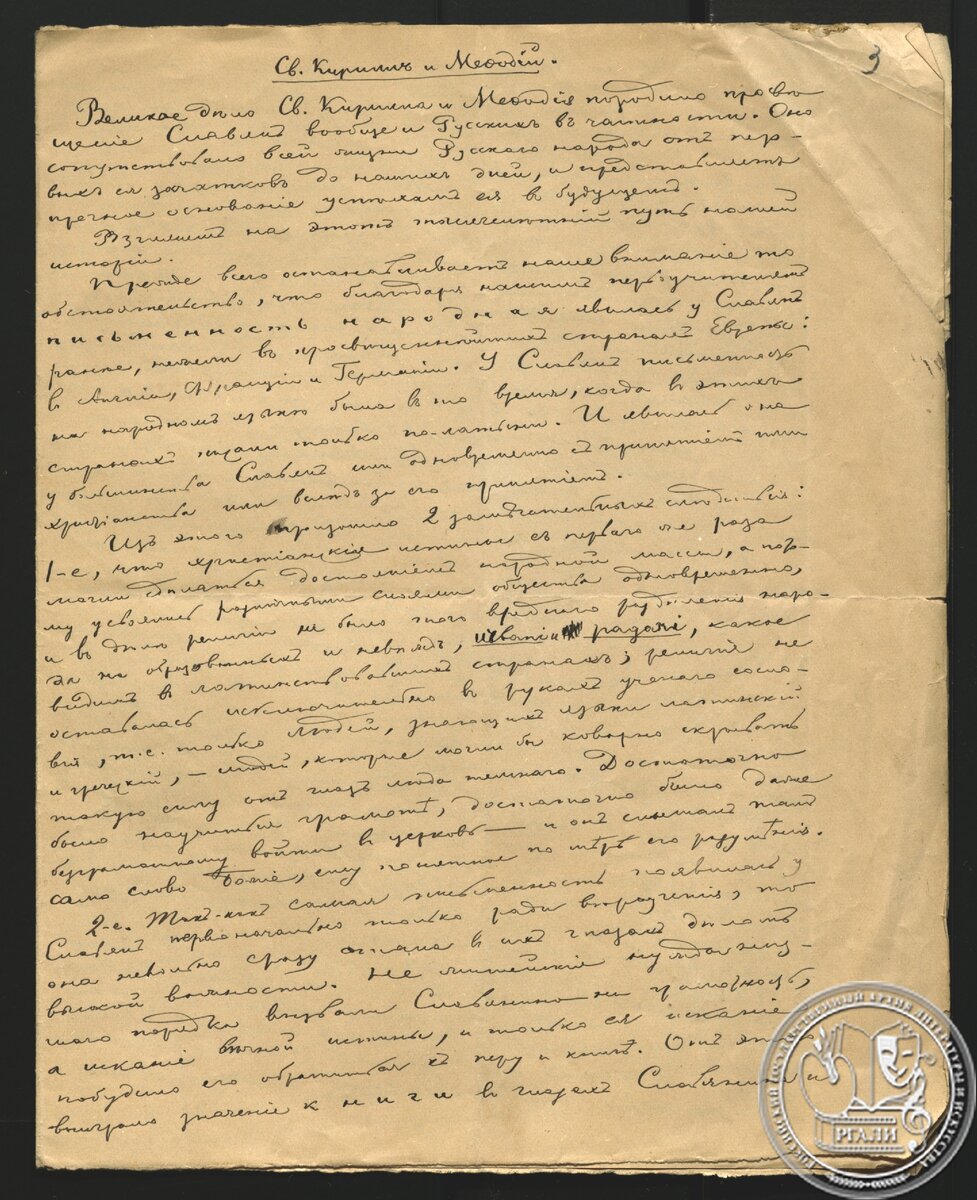 3
Св. Кириллъ и Меѳодій.
Великое дѣло Св. Кирилла и Меѳодія породило просвѣ
щеніе Славянъ вообще и Русскихъ въ частности. Оно
сопутствовало всей жизни Русскаго народа отъ пер-
выхъ ея зачатковъ до нашихъ дней, и представляетъ
прочное основаніе успѣхамъ ея въ будущемъ.
Взглянемъ на этотъ тысячелѣтній путь нашей
исторіи.
Прежде всего останавливаетъ наше вниманіе то
обстоятельство, что благодаря нашимъ первоучителямъ
письменность народная явилась у Славянъ
ранѣе, нежели въ просвѣщеннѣйшихъ странахъ Европы:
въ Англіи, Франціи и Германіи. У Славянъ письменность
на народномъ языкѣ была въ то время, когда въ этихъ
странахъ писали только по-латыни. И явилась она
у большинства Славянъ или одновременно съ принятіемъ
христіанства или вслѣдъ за его принятіемъ.
Изъ этого произошло 2 замѣчательныхъ слѣдствія:
1-е, что христіанскія истины съ перваго же раза
могли сдѣлаться достояніемъ народной массы, а пото-
му усвоялись различными слоями общества одновременно,
и въ дѣлѣ религіи не было того вреднаго раздѣленія наро-
да на образованныхъ и невѣждъ, какое
видимъ въ латинствовавшихъ странахъ; религія не
оставалась исключительно въ рукахъ ученаго сосло-
вія, т.е. только людей, знающихъ языки латинскій
и греческій, — людей, которые могли бы коварно скрывать
такую силу отъ глазъ люда темнаго. Достаточно
было научиться грамотѣ, достаточно было даже
безграмотному войти въ церковь — и онъ слышалъ тамъ
само слово Божіе, ему понятное по мѣрѣ его разумѣнія.
2-е. Такъ-какъ самая письменность появилась у
Славянъ первоначально только ради вѣроученія, то
она невольно сразу стала въ ихъ глазахъ дѣломъ
высокой важности. Не житейскія нужды низ-
шаго порядка вызвали Славянина на грамотность,
а исканіе вѣчной истины, и только ея исканіе
побудило его обратиться къ перу и книгѣ. Отъ этого
выиграло значеніе книги въ глазахъ Славянина и
РОССИЙСКИЙ ГОСУДАРСТВЕННЫЙ АРХИВ ЛИТЕРАТУРЫ И ИСКУССТВА
РГАЛИ